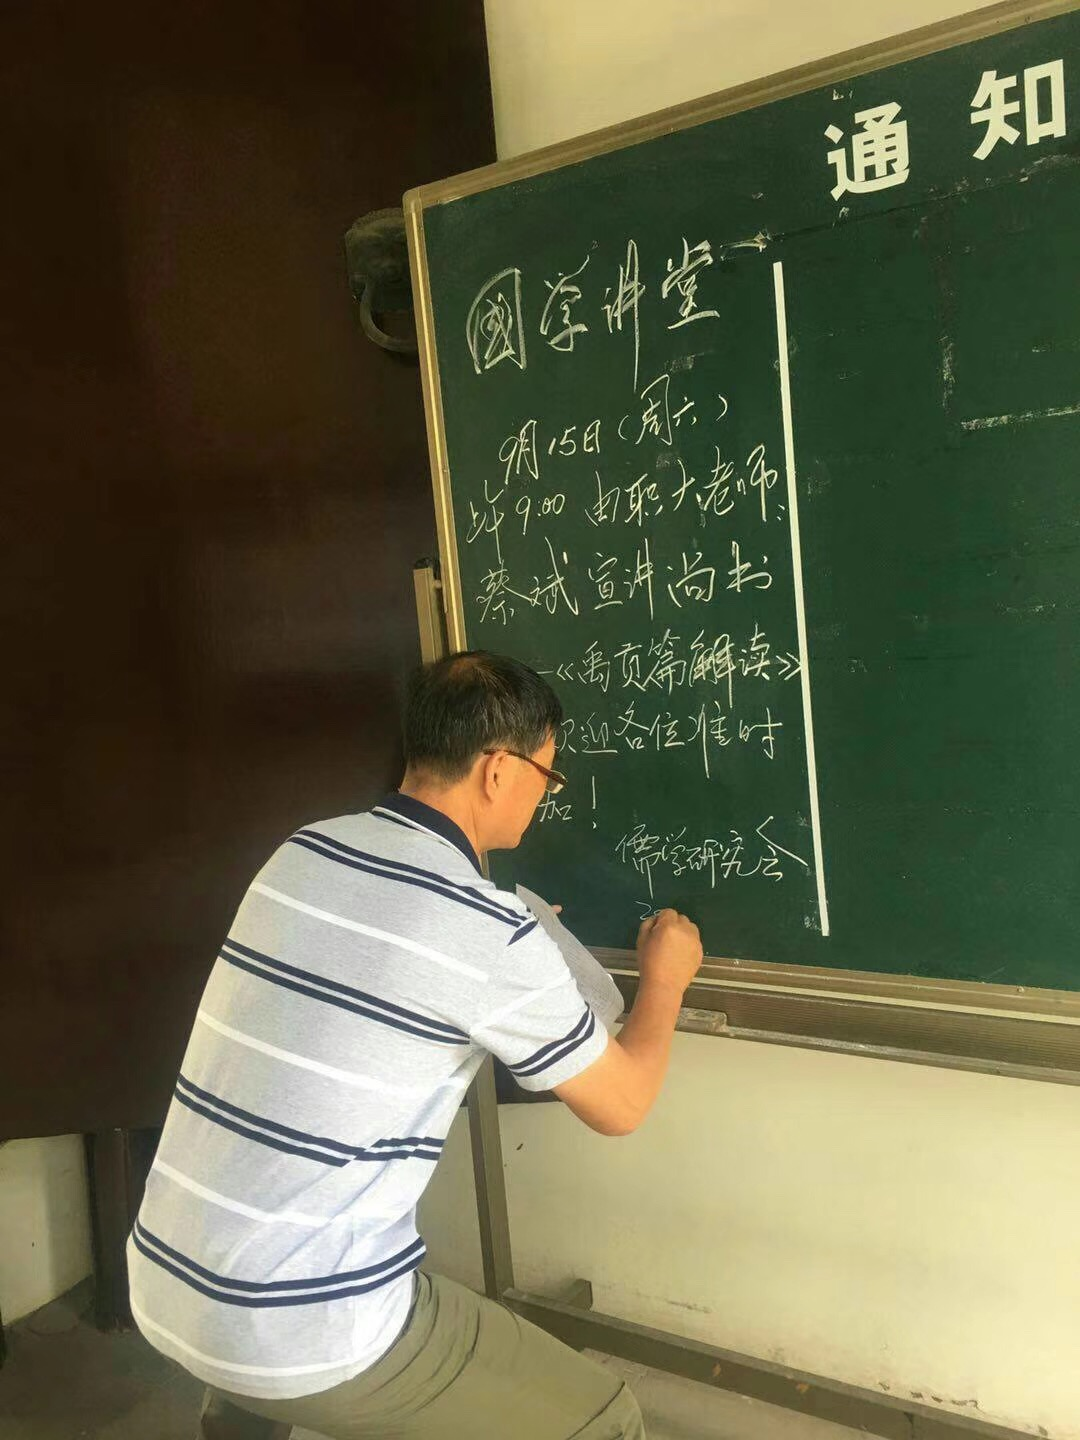 通知
国学讲堂
9月15日(周六)
上午9:00由职大老师:
蔡斌宣讲尚书
—《禹贡篇解读》
欢迎各位准时
加!
儒学研究会
2